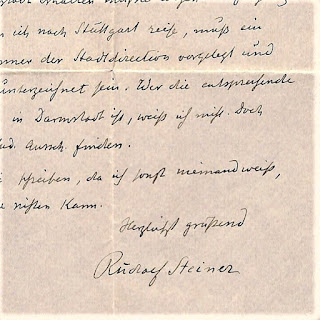 ich nach Stuttgart reise, muß ein
der Stadtdirection vorgelegt und
unterzeichnet sein. Wer die entsprechende
in Darmstadt ist, weiß ich nicht. Doch
finden.
schreiben, da ich sonst niemand weiß,
kann.
Herzlichst grüßend
Rudolf Steiner